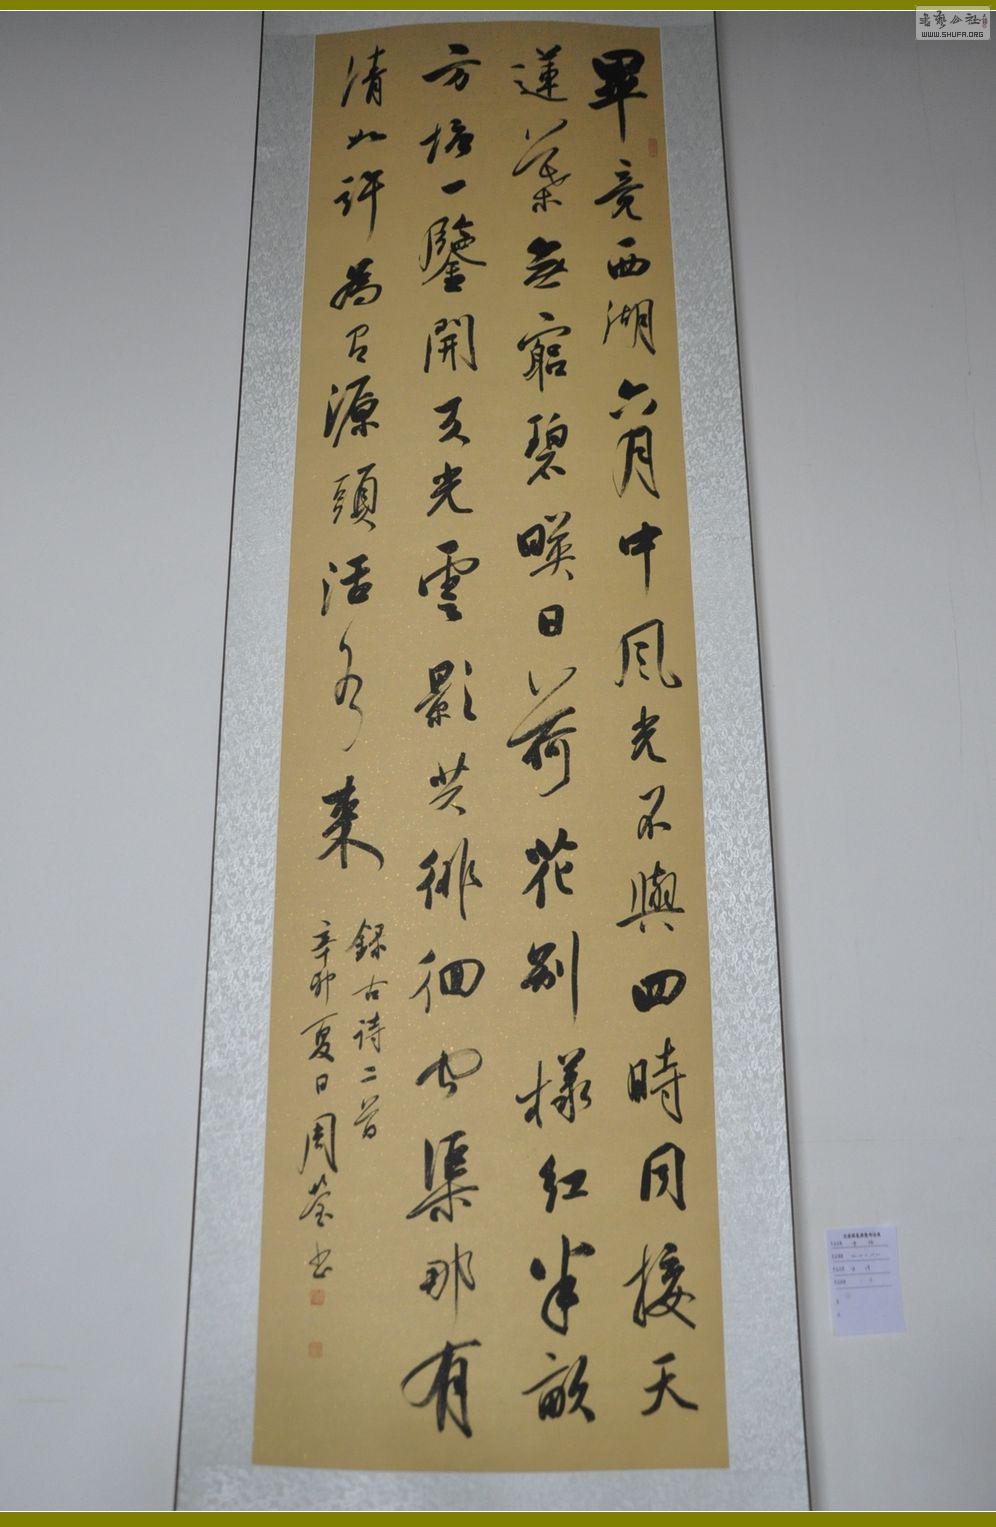 畢竟西湖六月中風光不與四時同接天
蓮葉無窮碧暎日荷花别樣紅半畝
方塘一鑒開天光雲影共徘徊問渠那有
清如許為有源頭活水來
録古詩二首
辛卯夏日周莹书
WWW.SHUFA.ORG